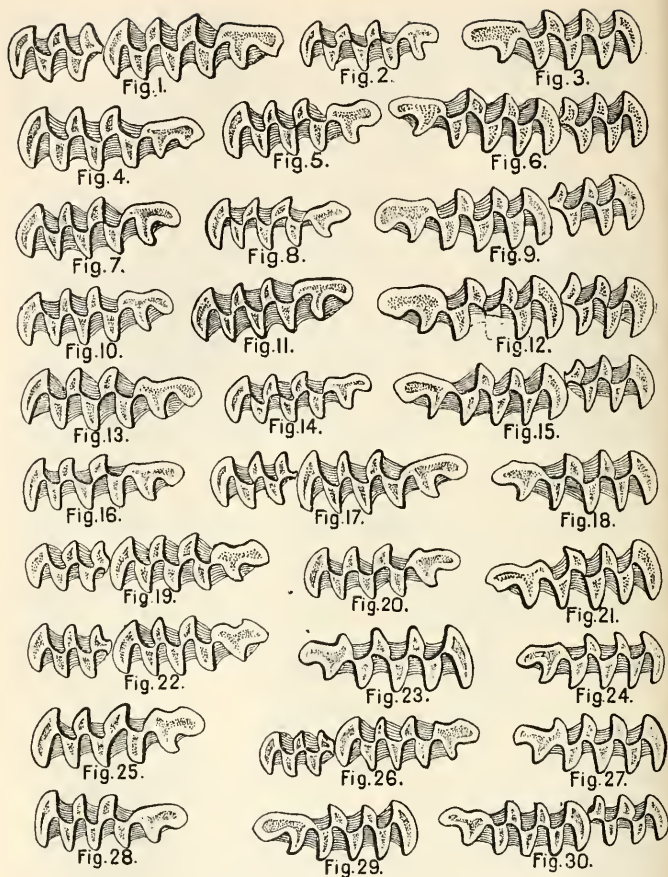 Fig.1. Fig.2. Fig.3.
Fig.4. Fig.5. Fig.6.
Fig.7. Fig.8. Fig.9.
Fig.10. Fig.11. Fig.12.
Fig.13. Fig.14. Fig.15.
Fig.16. Fig.17. Fig.18.
Fig.19. Fig.20. Fig.21.
Fig.22. Fig.23. Fig.24.
Fig.25. Fig.26. Fig.27.
Fig.28. Fig.29. Fig.30.